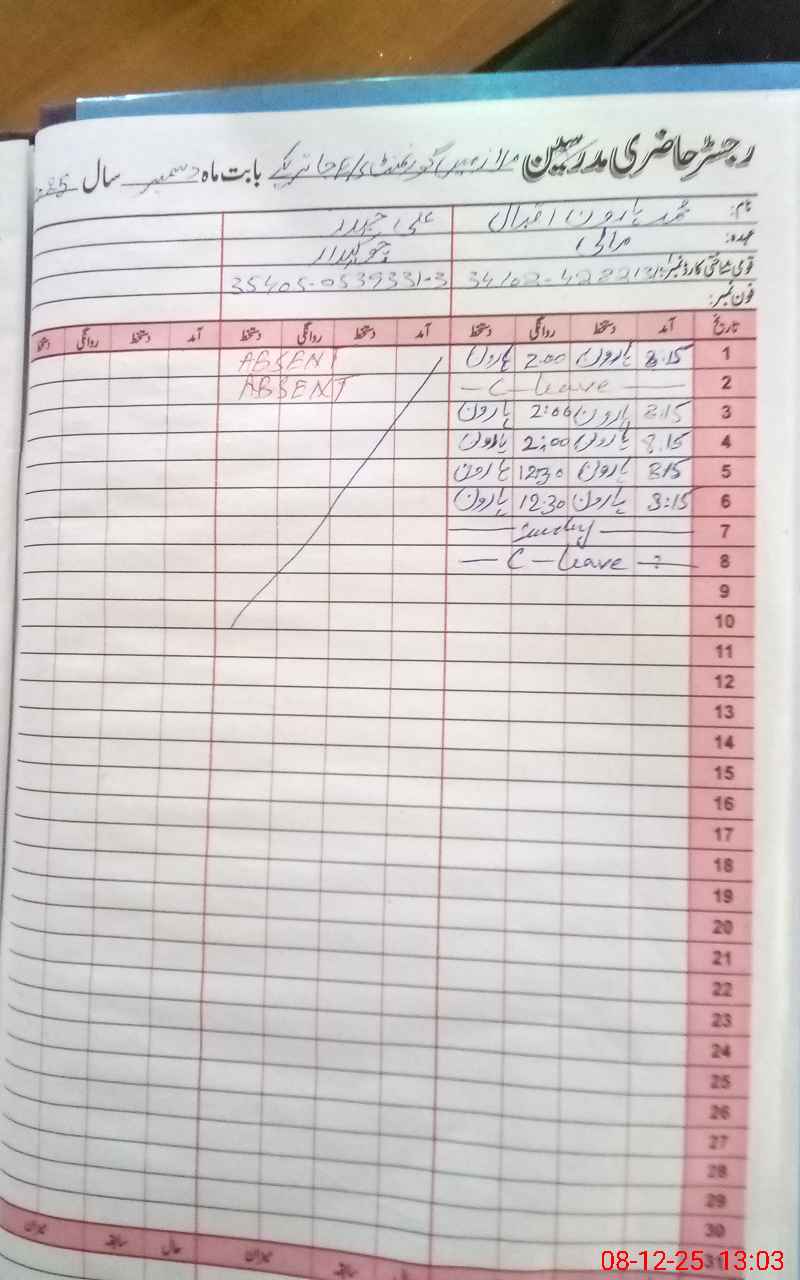 رجسٹر حاضری مدرسین ملازمین گورنمنٹ بابت ماہ دسمبر سال
نام: محمد ہارون اقبال علی حیدر
عہدہ: مالی چوکیدار
قومی شناختی کارڈ نمبر: 35405-0539331-3
فون نمبر:
تاریخ آمد دستخط روانگی دستخط آمد دستخط روانگی دستخط آمد دستخط روانگی دستخط
1 8.15 ہارون 2.00 ہارون ABSENT
2 C-leave ABSENT
3 8.15 ہارون 2:00 ہارون
4 8.15 ہارون 2:00 ہارون
5 8.15 ہارون 12:30 ہارون
6 8:15 ہارون 12:30 ہارون
7 Sunday
8 C-leave
9
10
11
12
13
14
15
16
17
18
19
20
21
22
23
24
25
26
27
28
29
30
31
میزان سابقہ حال میزان سابقہ
08-12-25 13:03